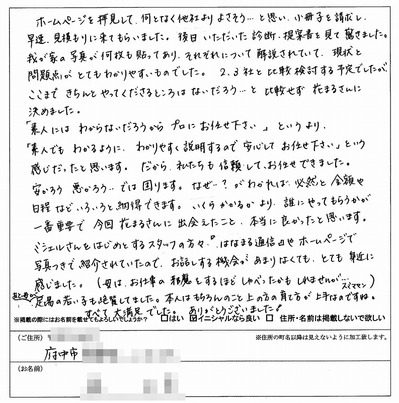 ホームページを拝見して、何となく他社よりよさそう…と思い、小冊子を請求し、
早速、見積もりに来てもらいました。後日いただいた診断・提案書を見て驚きました。
我が家の写真が何枚も貼ってあり、それぞれについて解説されていて、現状と
問題点がとてもわかりやすいものでした。2、3社と比較検討する予定でしたが、
ここまできちんとやってくださるところはないだろう…と比較せず花まるさんに
決めました。
「素人にはわからないだろうからプロにお任せ下さい」というより、
「素人でもわかるように、わかりやすく説明するので安心してお任せ下さい」という
感じだったと思います。だから、私たちも信頼してお任せできました。
安かろう悪かろう…では困ります。なぜ…?がわかれば、必然と金額や
日程などいろいろと納得できます。いくらかかるかより、誰にやってもらうかが
一番重要で今回花まるさんに出会えたこと、本当に良かったと思います。
ミシェルさんをはじめとするスタッフの方々が、はなまる通信やホームページで
写真つきで紹介されていたので、お話しする機会があまりなくても、とても身近に
感じました。(母は、お仕事の邪魔をするほどしゃべったかもしれませんが…スイマセン)
足場の若い方も絶賛してました。本人はもちろんのこと上の方の育て方が上手なのですね。
すべて大満足でした。ありがとうございました。
※掲載の際にはお名前を載せてもよろしいでしょうか? □はい ☑イニシャルなら良い □ 住所・名前は掲載しないで欲しい
(ご住所) 〒 ※住所の町名以降は見えないように加工致します。
府中市
(お名前)